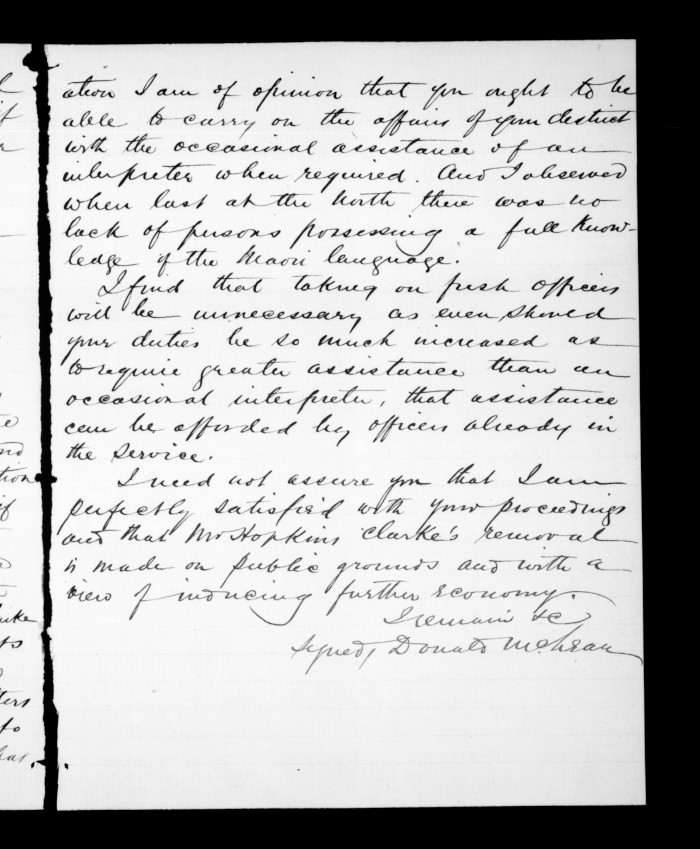 ation I am of opinion that you ought to be
able to carry on the affairs of your district
with the occasional assistance of an
interpreter when required. And I observed
when last at the North there was no
lack of persons possessing a full Know-
ledge of the Maori language.
I find that taking on fresh officers
will be unnecessary as even should
your duties be so much increased as
to require greater assistance than an
occasional interpreter, that assistance
can be afforded by officers already in
the Service.
I need not assure you that I am
perfectly satisfied with your proceedings
and that Mr Hopkins Clarke's removal
is made on public grounds and with a
view of inducing further Economy.
I remain &c
Signed, Donald McLean